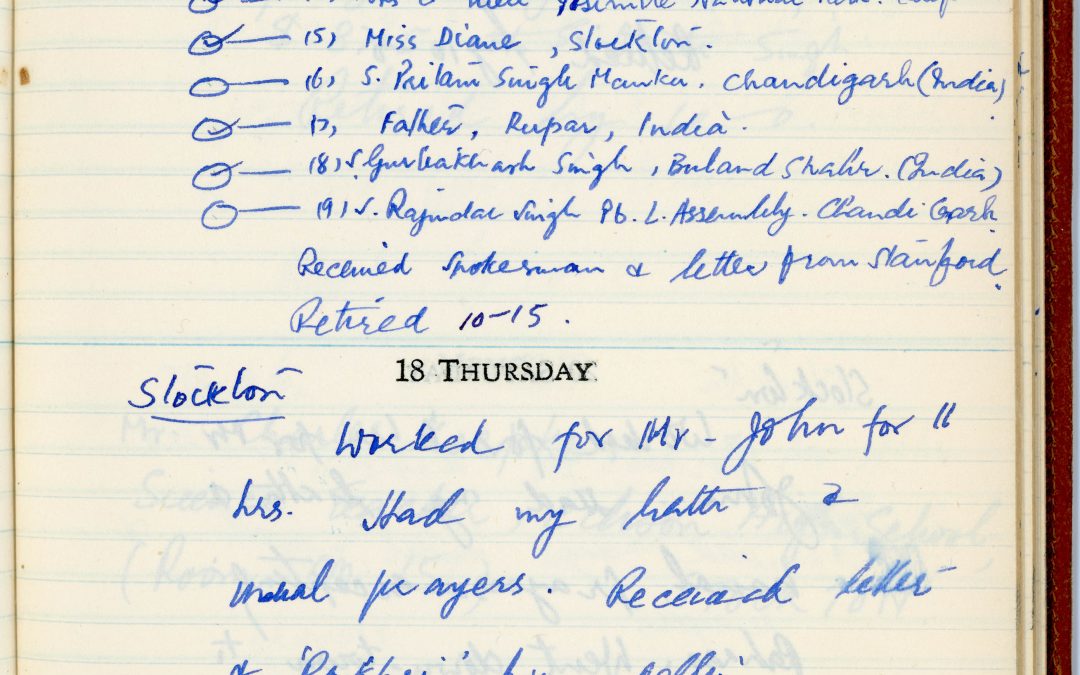 Yosemite National
15, Miss Diane, Stockton.
16, S. Pritam Singh Manku. Chandigarh (India)
17, Father, Rupar, India.
18, S. Gurbakhash Singh, Buland Shahr. (India)
19, S. Rajindar Singh Pb. L. Assembly. Chandi Garh.
Received Spokesman & letter from Stanford.
Retired 10-15.
18 THURSDAY
Stockton
Worked for Mr. John for 11
hrs. Had my bath &
usual prayers. Received letter
& 'Rakhri'